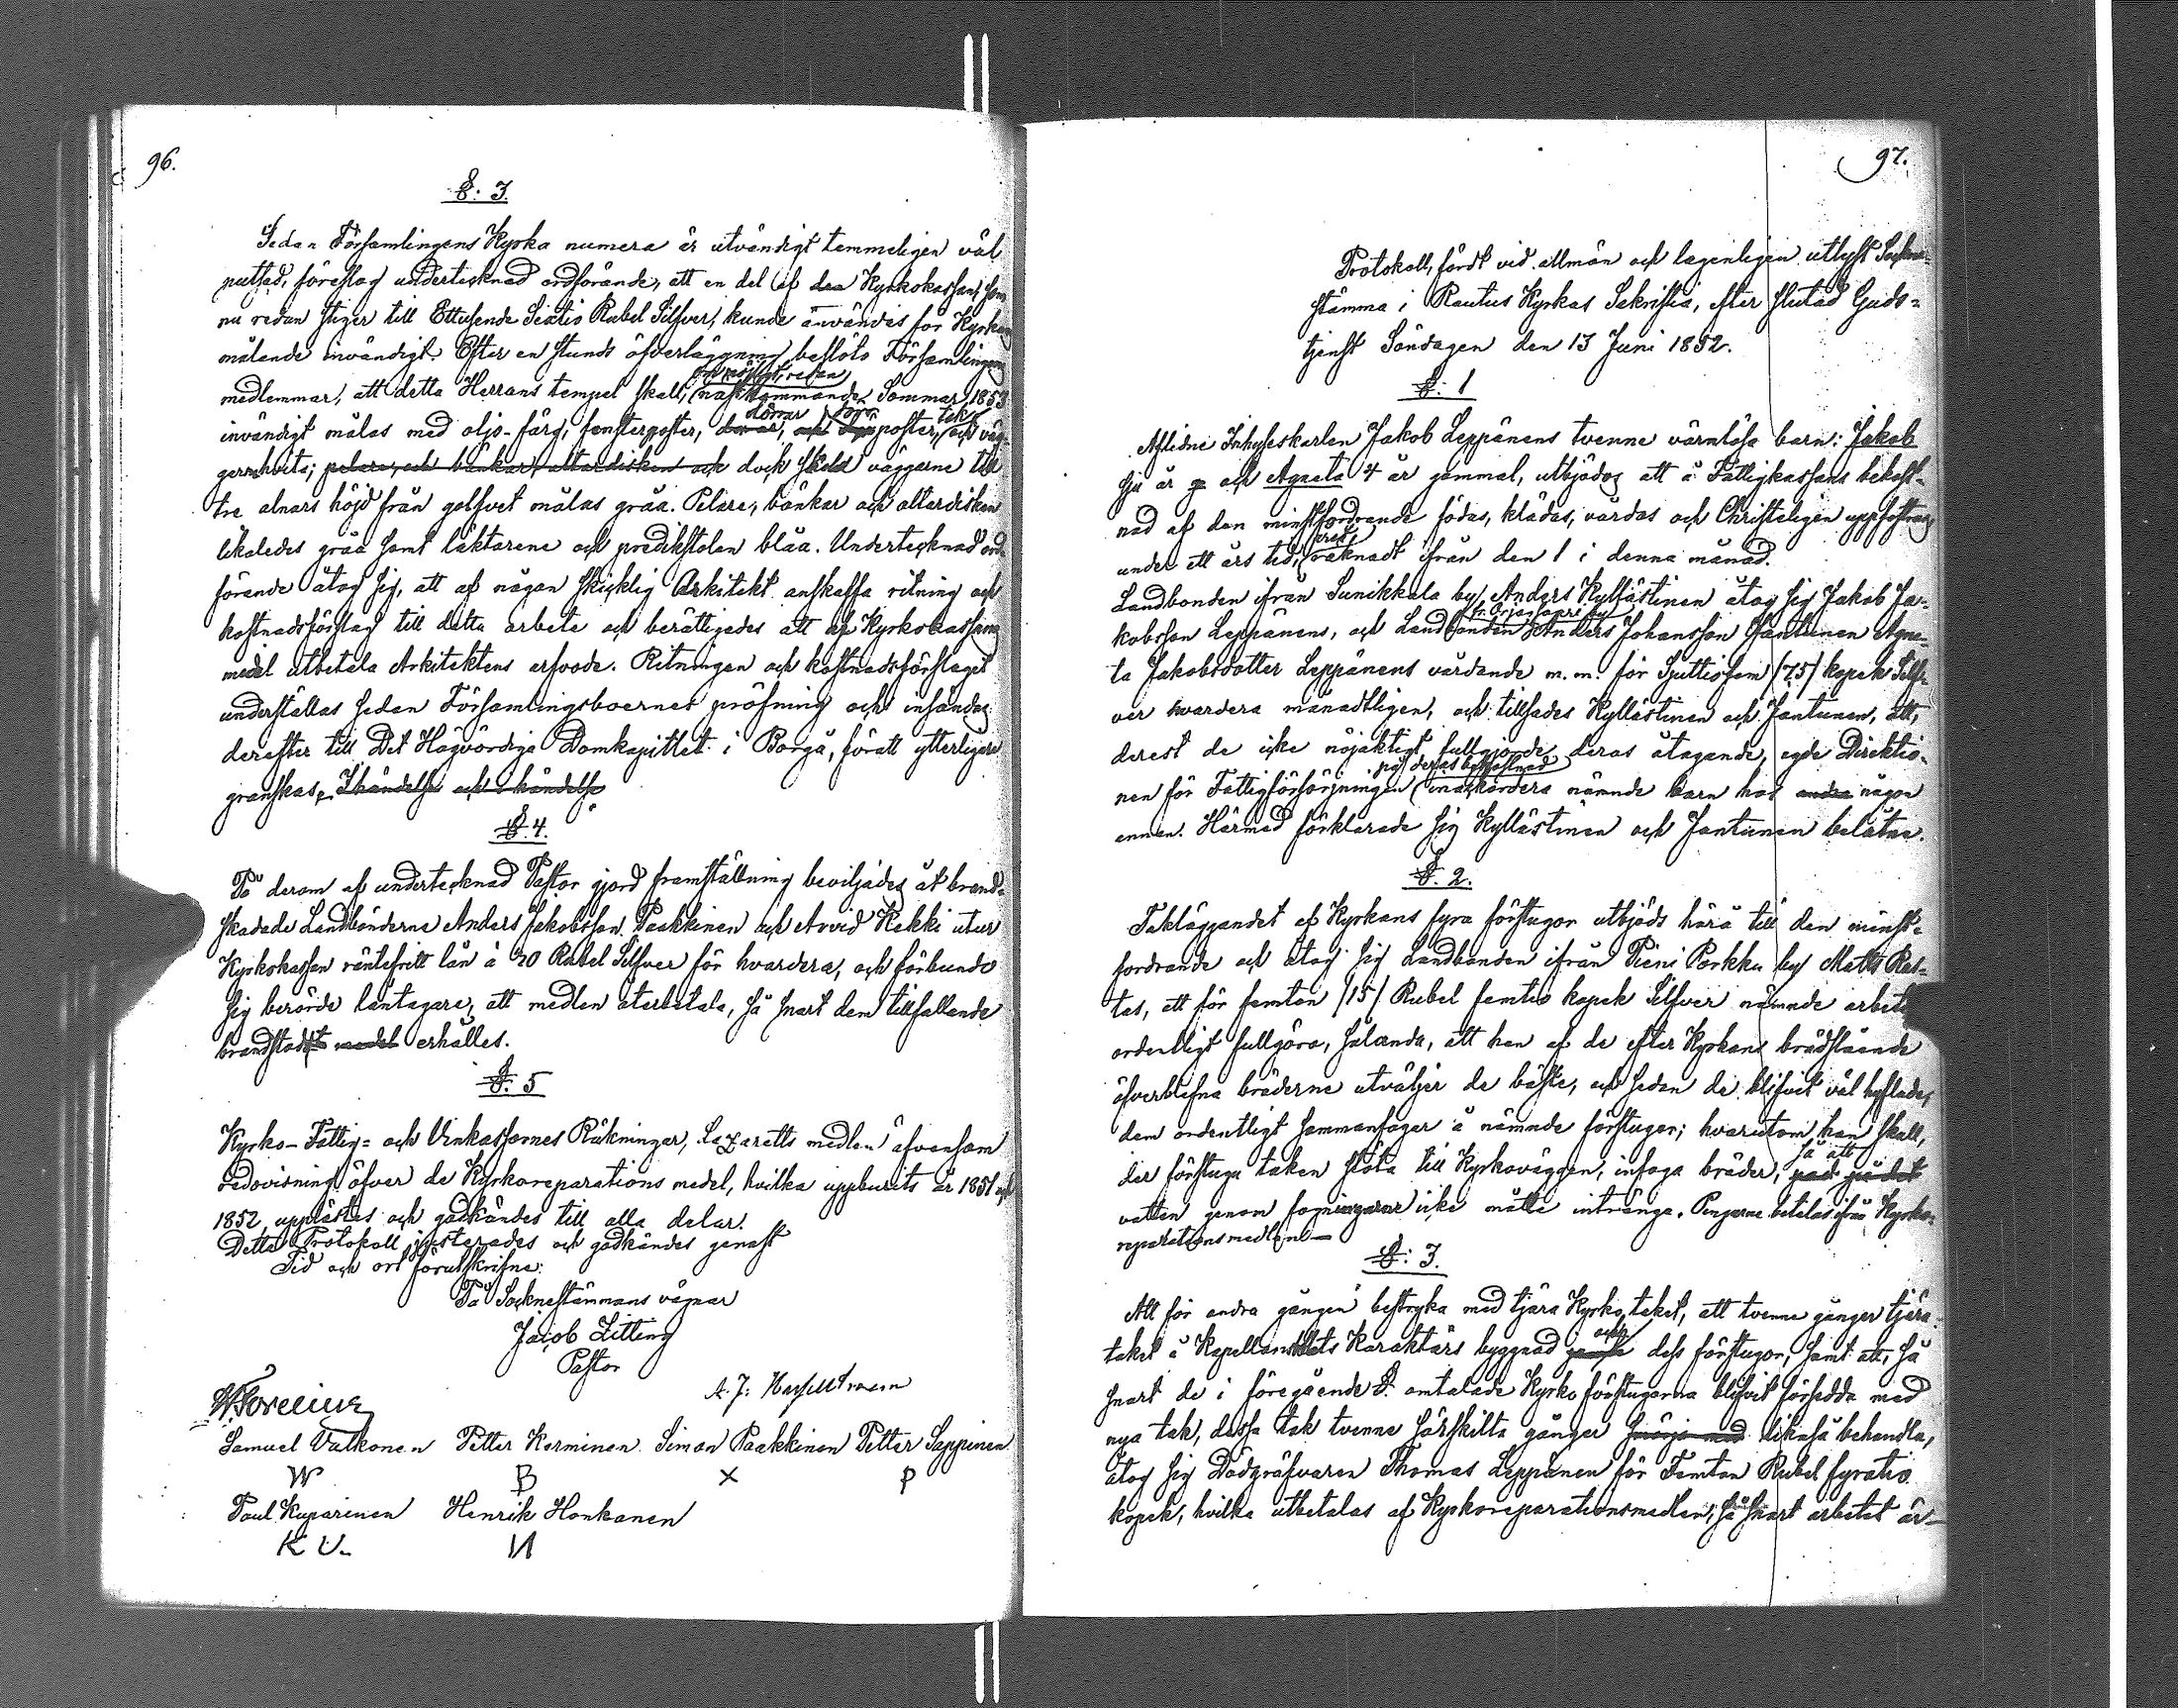 96.
§. 3.
Sedan Församlingens Kyrka numera är utvändigt temmeligen väl
putsad, föreslog undertecknad ordförande, att en del af den Kyrkokassan, som
nu redan stiger till Ettusende Sextio Rubel Silfver, kunde användas för Kyrkans
målande invändigt. Efter en stunds öfverläggning beslöto Församlingens
om möjligt, redan
medlemmar, att detta Herrans tempel skall, nästkommande Sommar 1853
dörrar tak
invändigt målas med oljo-färg; fensterposter, och poster, och väg-
garna hvita; pelare, och bänkar, altardisken och dock skola väggarne till
tre alnars höjd från golfvet målas gråa. Pelare, bänkar och altardisken
likaledes gråa samt läktarene och predikstolen blåa. Undertecknad ord-
förande åtog sig, att af någon skicklig Arkitekt anskaffa ritning och
kostnadsförslag till detta arbete och berättigades att af Kyrkokassans
medel utbetala Arkitektens arfvode. Ritningen och kostnadsförslaget
underställas sedan Församlingsboernas pröfning och insändas
derefter till Det Högvördiga Domkapitlet i Borgå, för att ytterligare
granskas. I händelse och I händelse
§. 4.
På derom af undertecknad Pastor gjord framställning beviljades åt brand-
skadade Landbönderne Anders Jakobsson Paakkinen och Arvid Kekki utur
Kyrkokassan räntefritt lån à 20 Rubel Silfver för hvardera, och förbundo
sig berörde låntagare, att medlen återbetala, så snart dem tillfallande
brandstod medel erhålles.
§. 5
Kyrko- Fattig- och Vinkassornes Räkningar, Lazaretts medlen äfvensom
redovisning öfver de Kyrkoreparations medel, hvilka uppburits år 1851 och
1852, upplästes och godkändes till alla delar.
Detta Protokoll justerades och godkändes genast
Tid och ort förutskrifne:
På Sockenstämmans vägnar
Jacob Zitting
Pastor
A. J:
Samuel Valkonen Petter Korminen Simon Paakkinen Petter Lappinen
W B X P
Paul Kuparinen Henrik Honkanen
K U. И
97.
Protokoll, fördt vid allmän och lagenligen utlyst Sockne-
stämma i Rautus Kyrkas Sakristia, efter slutad Guds-
tjenst Söndagen den 13 Juni 1852.
§. 1
Aflidne Inhyseskarlen Jakob Leppänens tvenne värnlösa barn: Jakob
sju år och Agneta 4 år gammal, utbjödos att å Fattigkassans bekost-
nad af den minstfordrande födas, klädas, vårdas och Christeligen uppfostras
under ett års tid, räknadt ifrån den 1 i denna månad.
Landbonden ifrån Sunikkala by, Anders Kyllästinen åtog sig Jakob Ja-
kobsson Leppänens, och Landbonden Anders Johansson Jantunen Agne-
ta Jakobsdotter Leppänens vårdande m. m. för Sjuttiofem /75/ kopek Silf-
ver hvardera månadtligen, och tillsades Kyllästinen och Jantunen, att,
derest de icke nöjaktigt fullgjorde deras åtagande, egde Direktio-
på deras bekostnad
nen för Fattigförsörjningen inackordera nämnde barn hos andra någon
annan. Härmed förklarade sig Kyllästinen och Jantunen belåtne.
§. 2.
Takläggandet af Kyrkans fyra förstugor utbjöds härå till den minst-
fordrande och åtog sig Landbonden ifrån Pieni Porkku by Matts Ras-
tas, att för femton /15/ Rubel femtio kopek Silfver nämnde arbete
ordentligt fullgöra, sålunda, att han af de efter Kyrkans brädslående
öfverblefna bräderne utväljer de bäste, och sedan de blifvit väl hyflade,
dem ordentligt sammanfogar å nämnde förstugor; hvarutom han skall,
så att
der förstugu taken stöta till Kyrkoväggen, infoga bräder,
vatten genom fogningarne icke måtte intränga. Pengarne betalas ifrån Kyrko-
reparationsmedlen.
§. 3.
Att för andra gången bestryka med tjära Kyrkotaket, att tvenne gånger tjära
och
taket å Kapellansbolets Karaktärs byggnad dess förstugor, samt att, så
snart de i föregående §. omtalade Kyrko förstugorna blifvit försedda med
nya tak, dessa tak tvenne särskilta gånger smörja med likaså behandla,
åtog sig Dödgräfvaren Thomas Leppänen för Femton Rubel fyratio
kopek, hvilka utbetalas af Kyrkoreparationsmedlen, så snart arbetet är